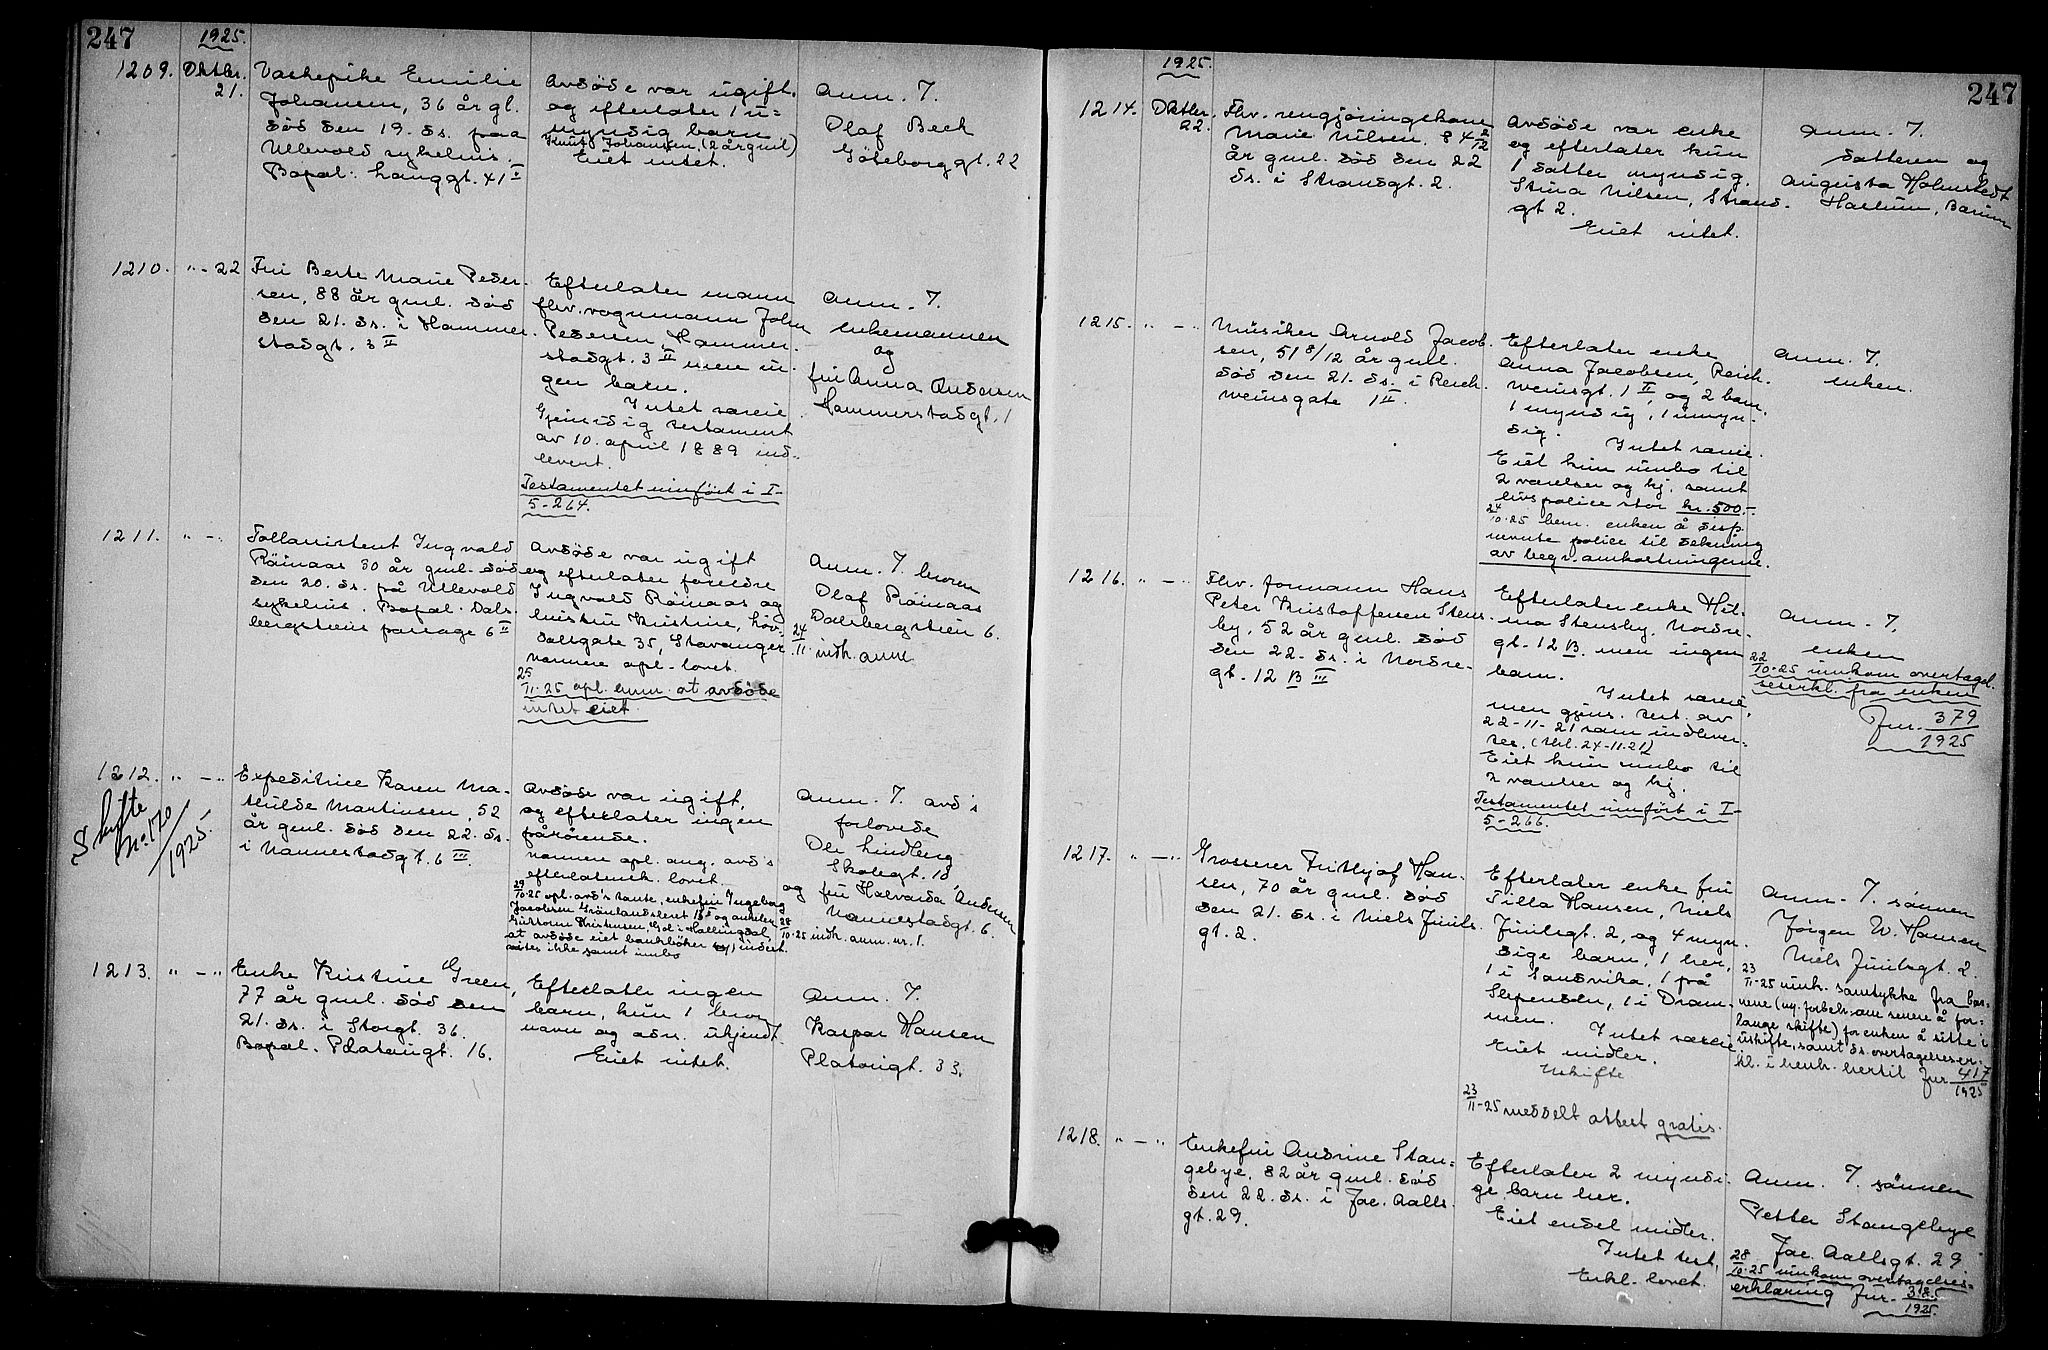 247
1925.
1209. Oktbr. 21.
Vaskepike Emilie
Johansen, 36 år gl.
död den 19. ds. paa
Ullevold sykehus.
Bopæl: Langgt. 41 II
Avdöde var ugift.
og efterlater 1 u=
myndig barn
Knut Johansen, (2 år gml)
Eiet intet.
Anm. T.
Olaf Beck
Göteborggt. 22
1210. " - 22
Fru Berte Marie Peder-
sen, 88 år gml. död
den 21. ds. i Hammer-
stadgt. 3 II
Efterlater mann
fhv. vognmann John
Pedersen, Hammer-
stadgt. 3 II men in-
gen barn.
Intet særeie.
Gjensidig testament
av 10. april 1889 ind-
levert.
Testamentet innført i I-
5-264.
Anm. T.
enkemannen
og
fru Anna Andersen
Hammerstadgt. 1
1211. " - "
Tollassistent Ingvald
Röinaas 30 år gml. död
den 20. ds. på Ullevold
sykehus. Bopæl. Dals-
bergstiens passage 6 II
Avdöde var ugift
og efterlater foreldre
Ingvald Röinaas og
hustru Kristine,
35, Stavanger
nærmere opl. lovet.
25/11-25 opl. anm. at avdöde
intet eiet
Anm. T. broren
Olaf Röinaas
Dalsbergstien 6.
24/11 indk. anm.
1212. " - "
Skifte
No. 170/1925.
Expeditrice Karen Ma-
thilde Martinsen, 52
år gml. död den 22. ds.
i Nannestadgt. 6 III.
Avdöde var ugift,
og efterlater ingen
pårörende.
nærmere opl. ang. avd's
efterladensk. lovet.
29/10-25 opl. avd's tante, enkefru Ingeborg
Jacobsen Grönlandsleret
Kristensen, Gol i Hallingdal,
at avdöde eiet bankböker
vites ikke samt innbo
Anm. T. avd's
forlovede
Ole Lindberg
Skolegt. 10,
og fru Halvarda Andersen
Nannestadgt. 6.
28/10-25 indk. anm. nr. 1.
1213. " - "
Enke Kristine Green,
77 år gml. död den
21. ds. i Storgt. 36.
Bopæl. Platougt. 16.
Efterlatte ingen
barn, kun 1 bror
navn og adr. ukjendt.
Eiet intet.
Anm. T.
Kaspar Hansen
Platougt. 33.
1925.
247
1214. Oktbr. 22.
Fhv. rengjöringskone
Marie Nilsen. 84 2/12
år gml. död den 22
ds. i Strandgt. 2.
Avdöde var enke
og efterlater kun
1 datter myndig.
Stina Nilsen, Strand-
gt 2.
Eiet intet.
Anm. T.
datteren og
Augusta Holmstedt
Haslum, Bærum
1215. " - "
Musiker Arnold Jacob-
sen, 51 8/12 år gml.
död den 21. ds. i Reich-
weinsgate 1 II.
Efterlater enke
Anna Jacobsen, Reich-
weinsgt. 1 II og 2 barn.
1 myndig, 1 umyn-
dig.
Intet særeie.
Eiet kun innbo til
2 værelser og kj. samt
livspolice stor kr. 500.-
24/10-25 bem. enken å disp.
nevnte police til dekning
av begr. omkostningene.
Anm. T.
enken.
1216. " - "
Fhv. formann Hans
Peter Kristoffersen Stens-
by, 52 år gml. död
den 22. ds. i Nordre-
gt. 12 B III
Efterlater enke Hil-
ma Stensby. Nordre-
gt. 12 B. men ingen
barn.
Intet særeie,
men gjens. test. av
22-11-21 som indlever-
tes. (tkl. 24-11-21)
Eiet kun innbo til
2 værelser og kj.
Testamentet innført i I-
5-266.
Anm. T.
enken
22/10-25 innkom overtagel-
seserkl. fra enken
Jur. 379/1925
1217. " - "
Grosserer Frithjof Han-
sen, 70 år gml. död
den 21. ds. i Niels Juuls-
gt. 2.
Efterlater enke fru
Tilla Hansen, Niels
Juulsgt. 2, og 4 myn-
dige barn, 1 her,
1 i Sandvika, 1 på
Slependen, 1 i Dram-
men.
Intet særeie
Eiet midler.
Uskifte
23/11-25 meddelt attest gratis.
Anm. T. sönnen
Jörgen W. Hansen
Niels Juulsgt. 2.
23/11-25 innk. samtykke fra bar-
nene (m. forbeh. om senere å for-
lange skifte) for enken å sitte i
uskifte, samt ds. overtagelseser-
kl. i henh. hertil Jur 417/1925
1218. " - "
Enkefru Andrine Stan-
gebye, 82 år gml. död
den 22. ds. i Jac. Aalls-
gt. 29.
Efterlater 2 myndi-
ge barn her.
Eiet endel midler.
Intet test.
Erkl. lovet.
Anm. T. sönnen
Petter Stangebye
Jac. Aallsgt. 29.
28/10-25 innkom overtagelses-
erklæring Jur. 385/1925.